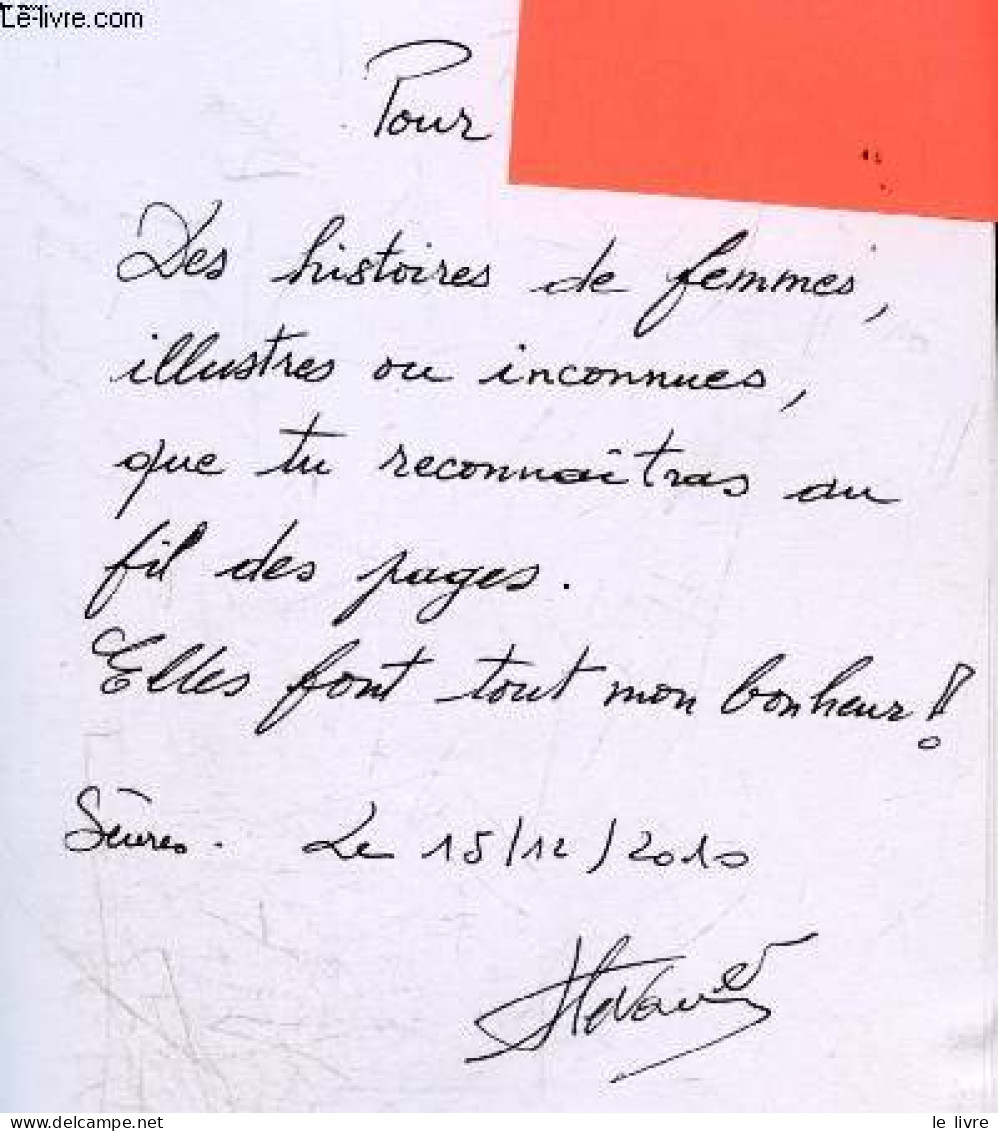 Le-livre.com
Pour
Des histoires de femmes,
illustres ou inconnues,
que tu reconnaîtras au
fil des pages.
Elles font tout mon bonheur!
Sèvres. Le 15/12/2010
le livre